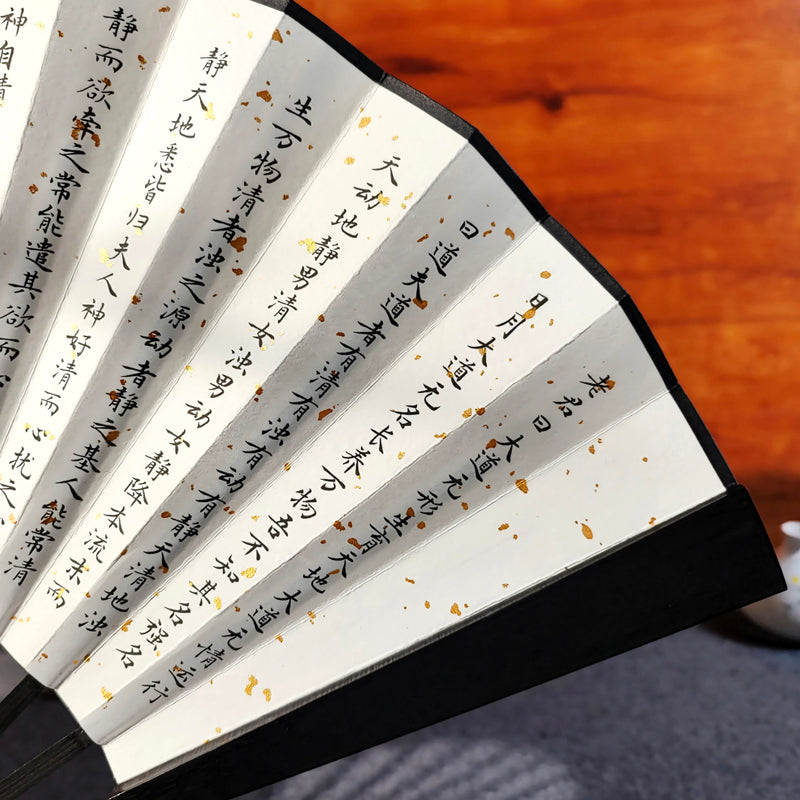 老君曰大道无形生育天地大道无情运行
日月大道无名长养万物吾不知其名强名
曰道夫道者有清有浊有动有静天清地浊
天动地静男清女浊男动女静降本流末而
生万物清者浊之源动者静之基人能常清
静天地悉皆归夫人神好清而心扰之
静而欲牵之常能遣其欲而心
神自清